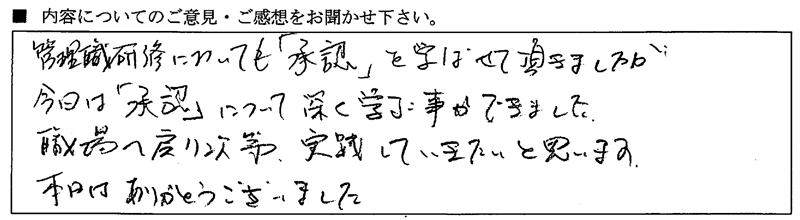 ■ 内容についてのご意見・ご感想をお聞かせ下さい。
管理職研修においても「承認」を学ばせて頂きましたが
今日は「承認」について深く学ぶ事ができました。
職場へ戻り次第、実践していきたいと思います。
本日はありがとうございました